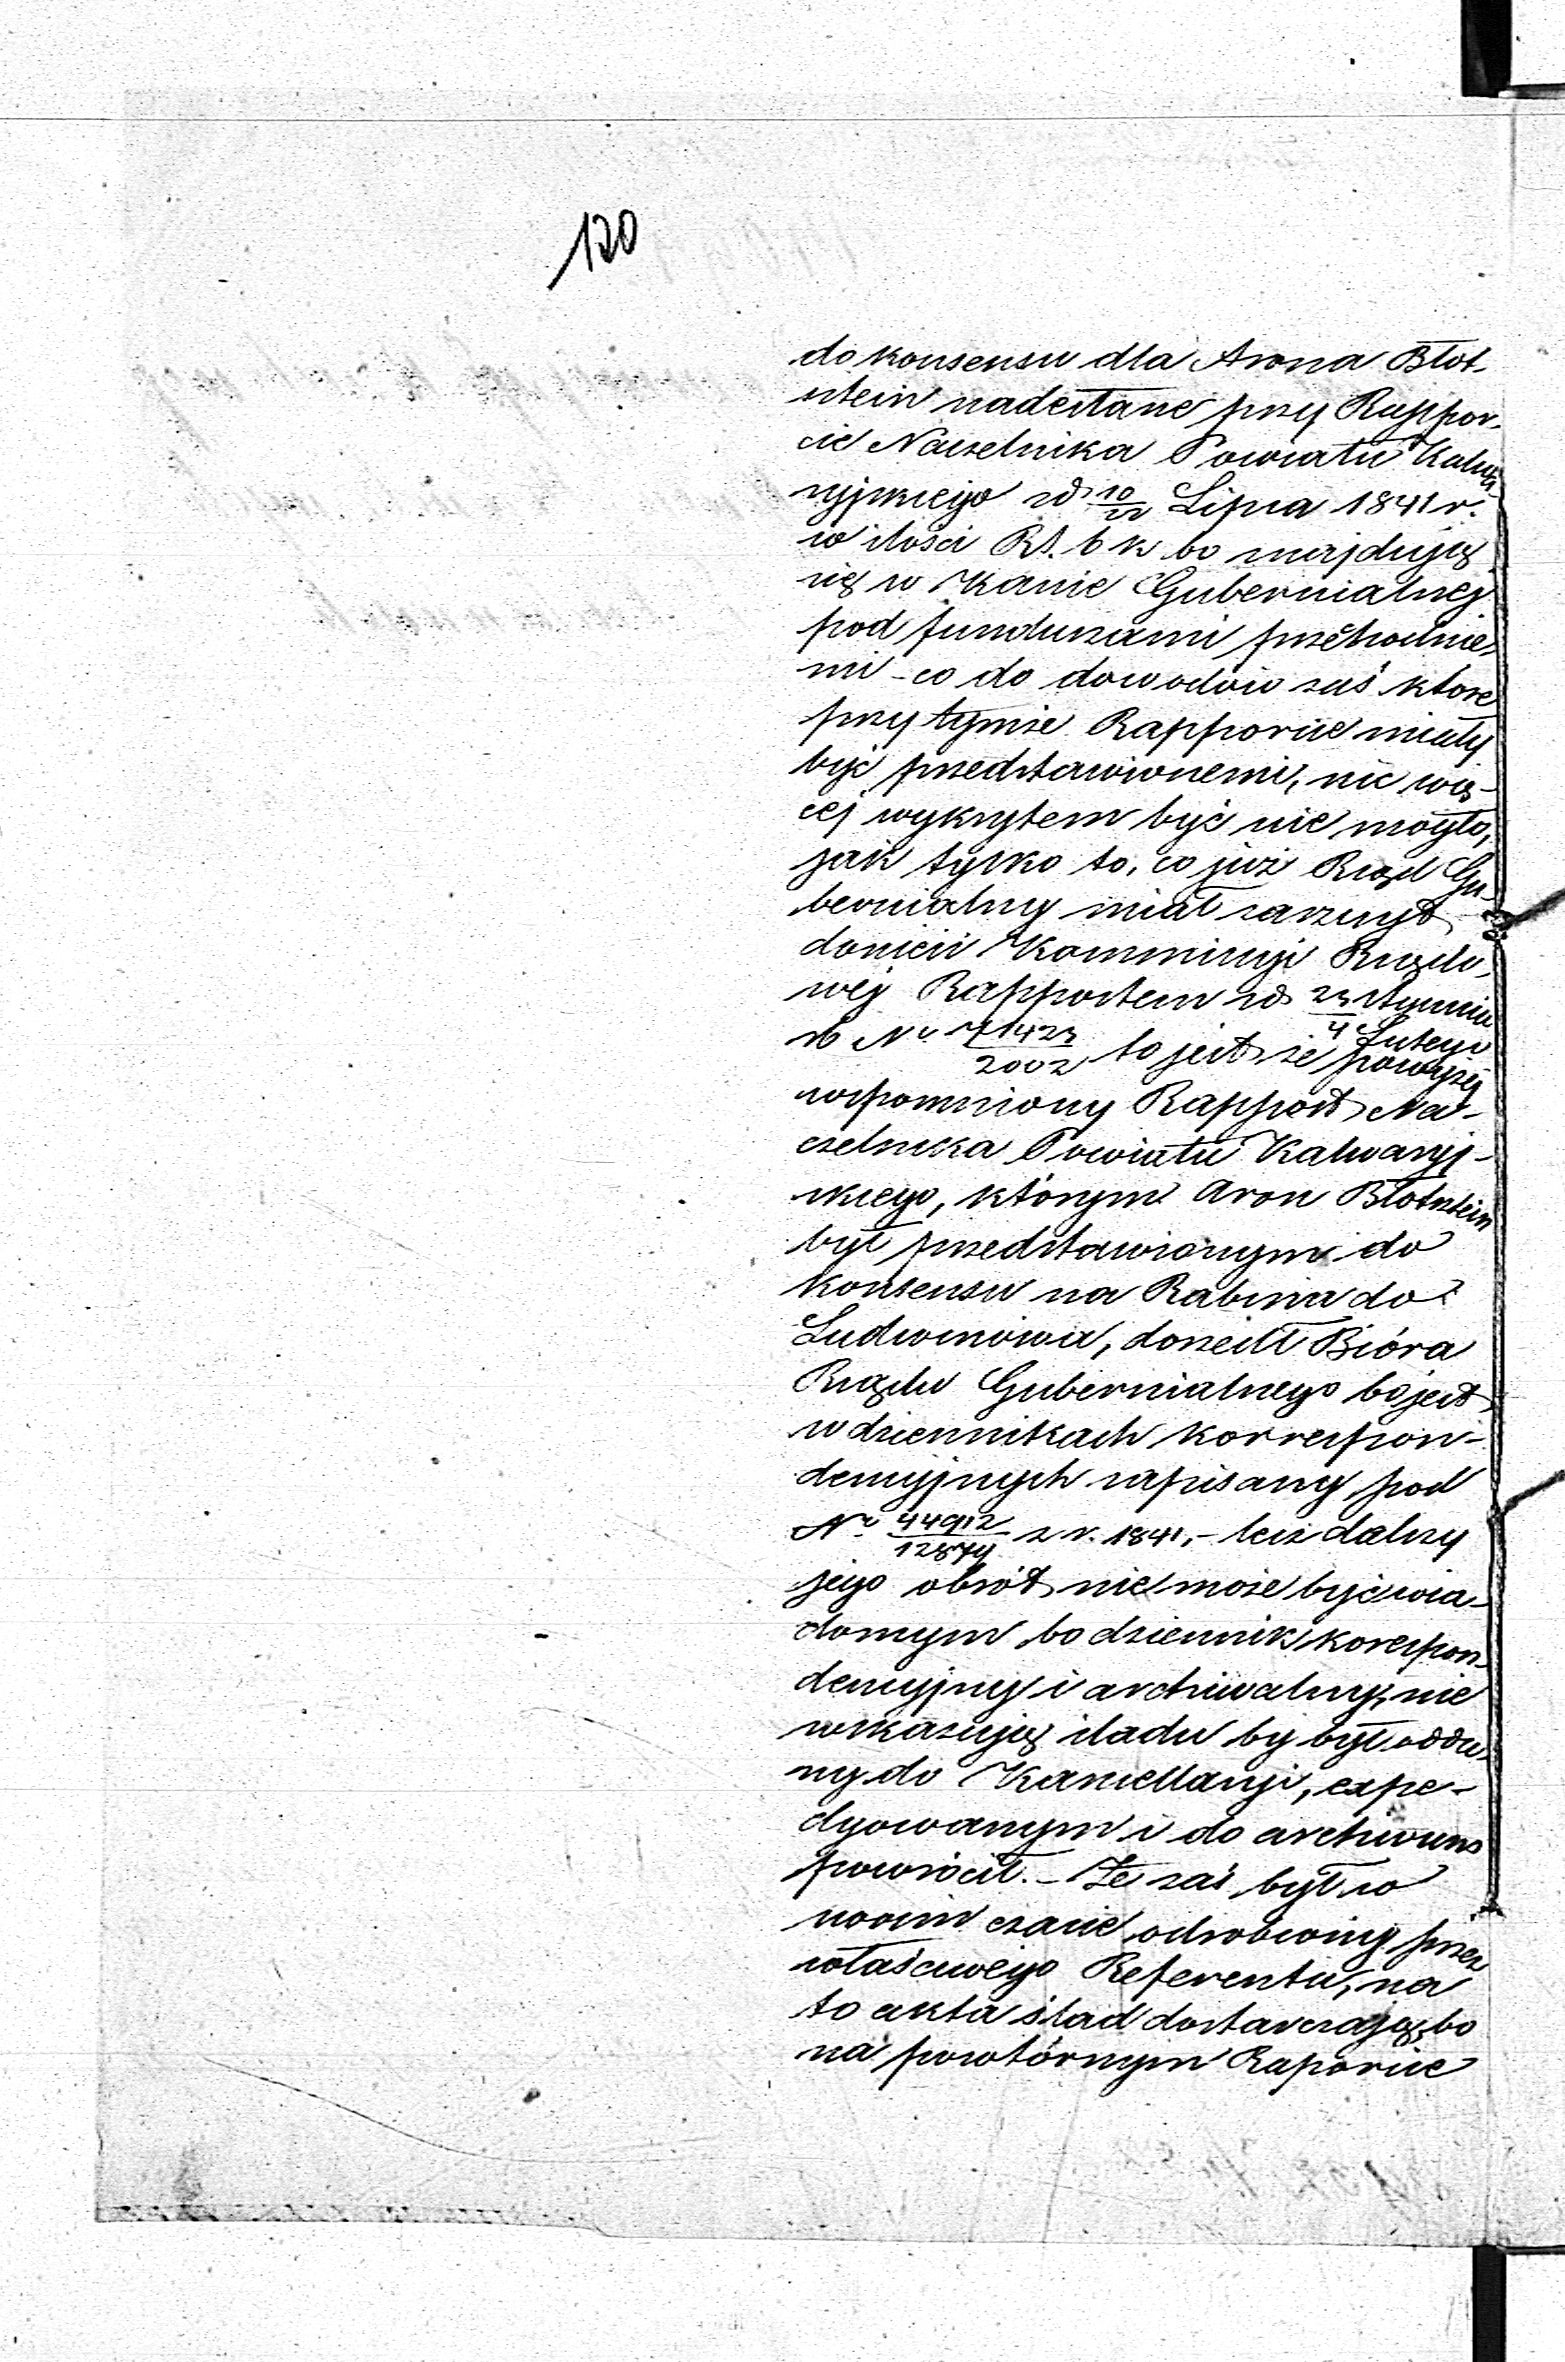 120
do konsensu dla Arona Błot-
sztein nadesłane przy Rappor-
cie Naczelnika Powiatu Kalwa-
ryjskiego z d. 10/22 Lipca 1841 r.
w ilości RS. 6 k 60 znajdują
się w Kassie Gubernialnej
pod funduszami przechodnie-
mi - co do dowodów zaś które
przy tymże Rapporcie miały
być przedstawionemi, nic wię-
cej wykrytem być nie mogło,
jak tylko to, co już Rząd Gu-
bernialny miał zaszczyt
donieść Kommissyi Rządo-
wej Rapportem z d. 23 Stycznia
/ 4 Lutego
rb No 71423/2002 to jest że powyżej
wspomniony Rapport Na-
czelnika Powiatu Kalwaryj-
skiego, którym Aron Błotsztein
był przedstawionym do
konsensu na Rabina do
Ludwinowa, doszedł Bióra
Rządu Gubernialnego bo jest
w dziennikach korrespon-
dencyjnych zapisany pod
No 44912/12874 z r. 1841, - lecz dalszy
jego obrót nie może być wia-
domym bo dziennik korespon-
dencyjny i archiwalny, nie
wskazują śladu by był odda-
ny do Kancellaryi, expe-
dyowanym i do archiwum
powrócił. - Że zaś był w
swoim czasie odrobiony przez
właściwego Referenta, na
to akta ślad dostarczają, bo
na powtórnym Raporcie